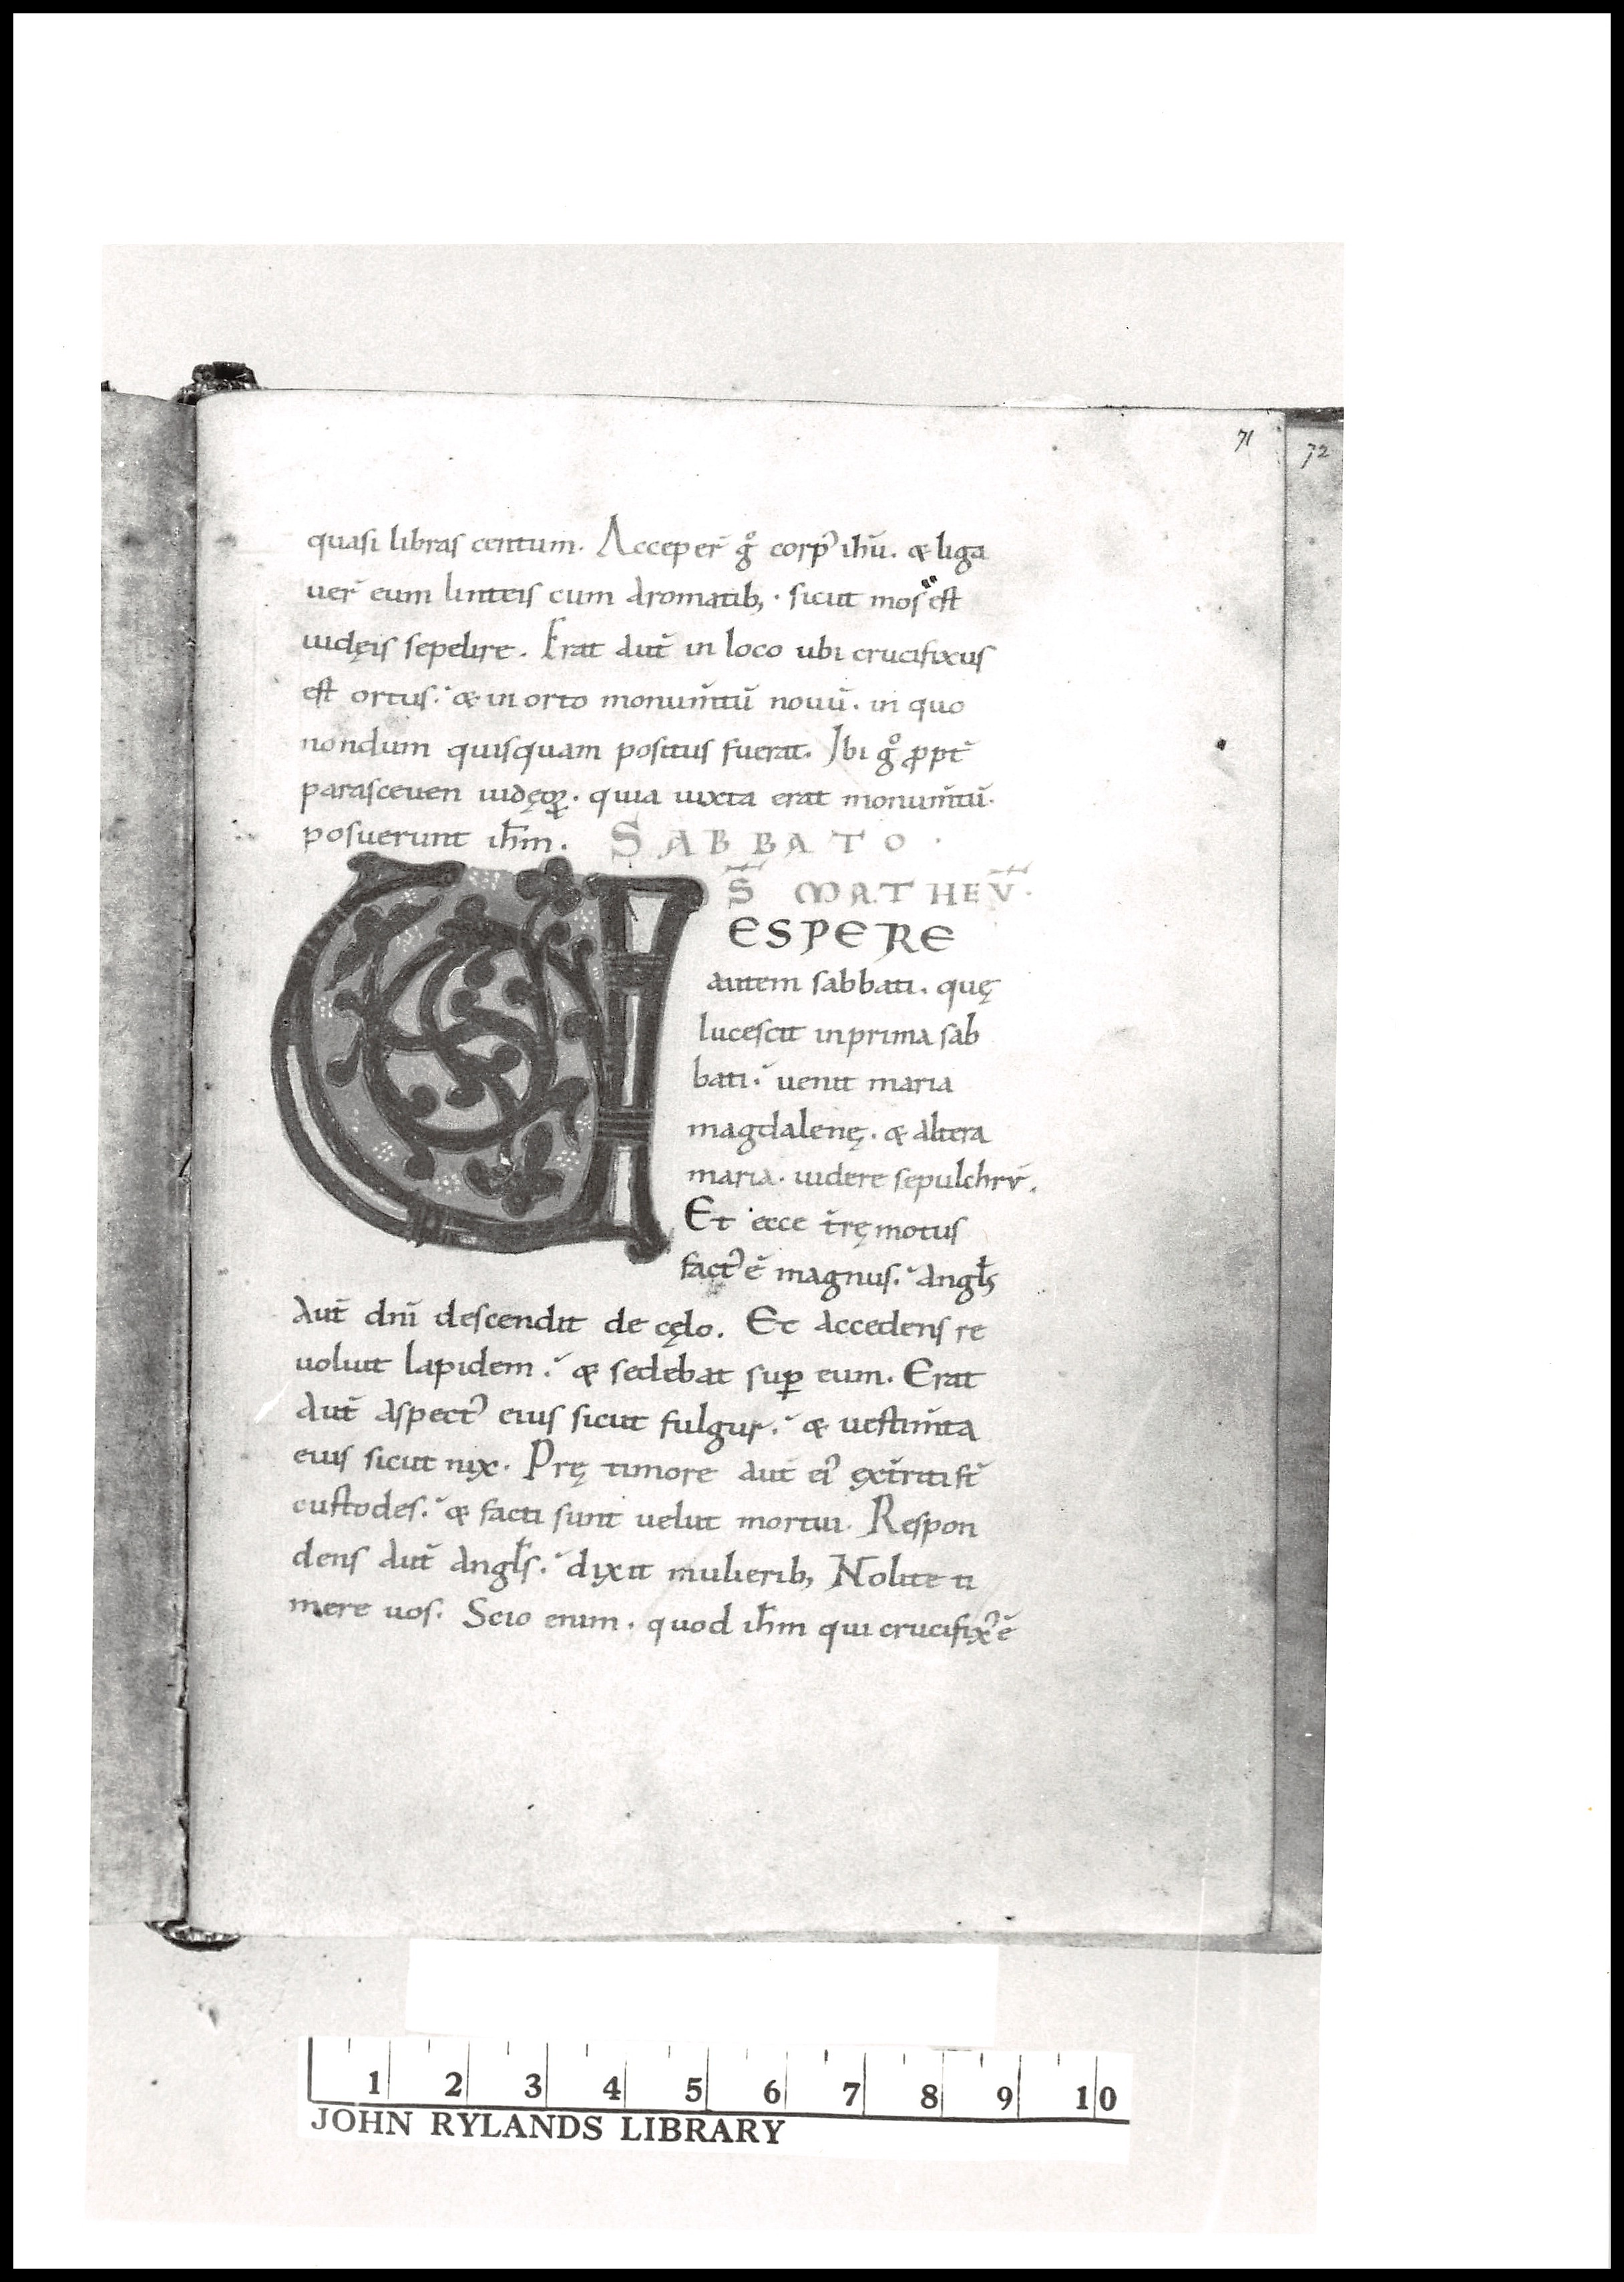 71
72
quasi libras centum. Acceper̄ gͦ corpꝰ ihū. & liga
uer̄ eum linteis cum aromatib; · sicut mos est
iudęis sepelire. Erat aut̄ in loco ubi crucifixus
est ortus. & in orto monum̄tū nouū. in quo
nondum quisquam positus fuerat. Ibi gͦ ꝓpt̄
parasceuen iudęoꝝ. quia iuxta erat monum̄tū.
posuerunt ihm̄. SABBATO.
S̄ MATHEV̄.
ESPERE
autem sabbati. quę
lucescit in prima sab
bati. uenit maria
magdalenę. & altera
maria. uidere sepulchrū.
Et ecce t̄ręmotus
factꝰ ē magnus. angl̄s
aut̄ dn̄i descendit de cęlo. Et accedens re
uoluit lapidem. & sedebat suꝑ eum. Erat
aut̄ aspectꝰ eius sicut fulgur. & uestim̄ta
eius sicut nix. Prę timore aut̄ eiꝰ ext̄riti st̄
custodes. & facti sunt uelut mortui. Respon
dens aut̄ angl̄s. dixit mulierib; Nolite ti
mere uos. Scio enim. quod ihm̄ qui crucifixꝰ ē
1 2 3 4 5 6 7 8 9 10
JOHN RYLANDS LIBRARY